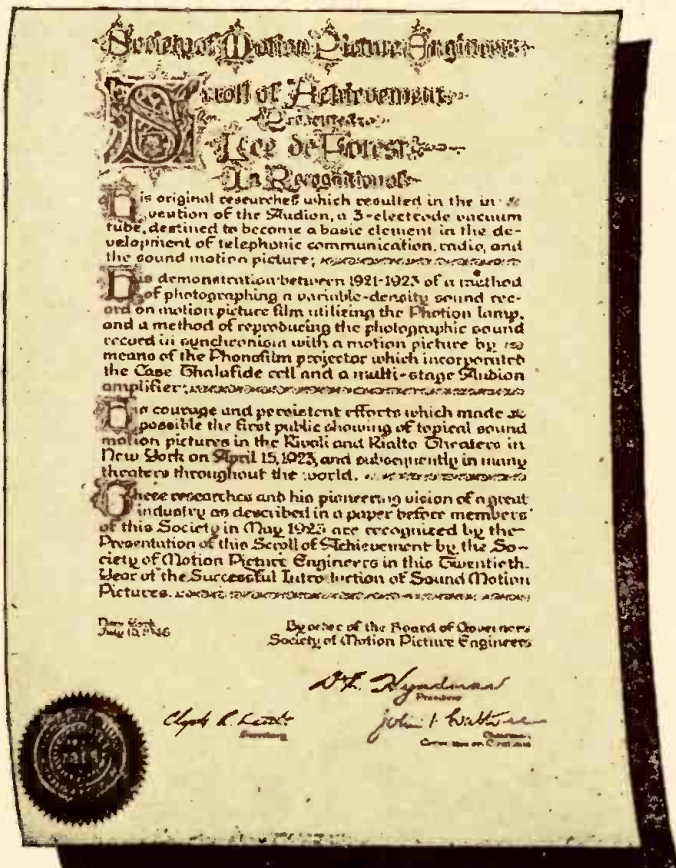 Society of Motion Picture Engineers
Scroll of Achievement
Presented to
Lee de Forest
In Recognition of
His original researches which resulted in the in
vention of the Audion, a 3-electrode vacuum
tube, destined to become a basic element in the de-
velopment of telephonic communication, radio, and
the sound motion picture;
His demonstration between 1921-1923 of a method
of photographing a variable-density sound rec-
ord on motion picture film utilizing the Photion lamp,
and a method of reproducing the photographic sound
record in synchronism with a motion picture by
means of the Phonofilm projector which incorporated
the Case Thalofide cell and a multi-stage Audion
amplifier;
His courage and persistent efforts which made
possible the first public showing of topical sound
motion pictures in the Rivoli and Rialto Theaters in
New York on April 15, 1923, and subsequently in many
theaters throughout the world.
These researches and his pioneering vision of a great
industry as described in a paper before members
of this Society in May 1923 are recognized by the
Presentation of this Scroll of Achievement by the So-
ciety of Motion Picture Engineers in this Twentieth
Year of the Successful Introduction of Sound Motion
Pictures.
New York
July 10, 1946
By order of the Board of Governors
Society of Motion Picture Engineers
D. E. Hyndman
President
Clyde R.
Secretary
John I.
Chairman
Committee on